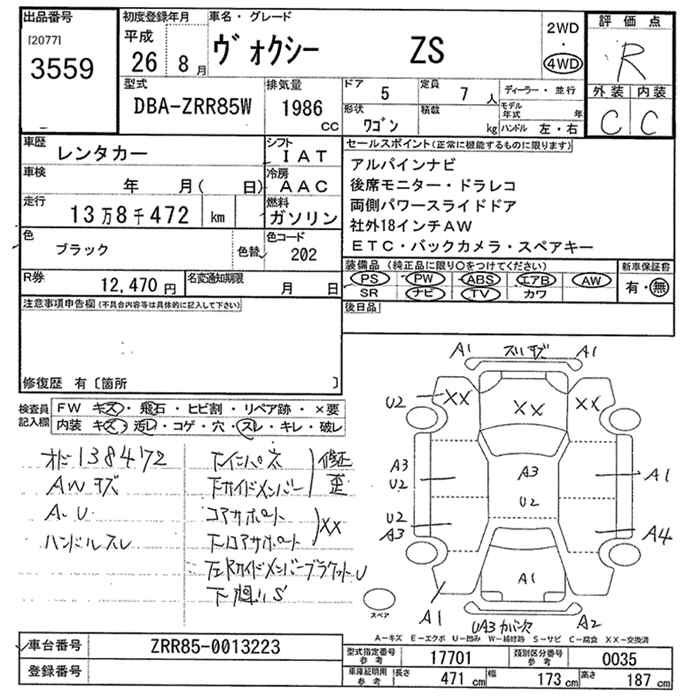 出品番号
[2077]
3559
初度登録年月
平成
26 8月
車名・グレード
ヴォクシー ZS
2WD
・
4WD
評価点
R
外装 内装
C C
型式
DBA-ZRR85W
排気量
1986 cc
ドア 5
定員 7 人
形状 ワゴン
積載 kg
ディーラー・並行
モデル年式 年
ハンドル 左・右
車歴 レンタカー
シフト IAT
車検 年 月( 日)
冷房 AAC
走行 13万8千472 km
燃料 ガソリン
色 ブラック 色替
色コード 202
R券 12,470円
名変通知期限 月 日
セールスポイント(正常に機能するものに限ります)
アルパインナビ
後席モニター・ドラレコ
両側パワースライドドア
社外18インチAW
ETC・バックカメラ・スペアキー
装備品(純正品に限り○をつけてください)
PS PW ABS エアB AW
SR ナビ TV カワ
新車保証書
有・無
後日品
注意事項申告欄(不具合内容等は具体的に記入して下さい)
修復歴 有〔箇所 〕
検査員記入欄
FW キズ・飛石・ヒビ割・リペア跡・×要
内装 キズ・汚レ・コゲ・穴・スレ・キレ・破レ
オド138472
AWキズ
A.U
ハンドルスレ
下インパネ
下サイドメンバー
修正
歪
コアサポート
下コアサポート
XX
A1 A1
U2 XX XX XX
A3
U2
U2
A3
A3
U2
A1
A4
A1
A1 A2
UA3
スペア
A-キズ E-エクボ U-凹み W-補修跡 S-サビ C-腐食 XX-交換済
車台番号 ZRR85-0013223
登録番号
型式指定番号 参考 17701
類別区分番号 参考 0035
車庫証明用 参考 長さ 471 cm 幅 173 cm 高さ 187 cm